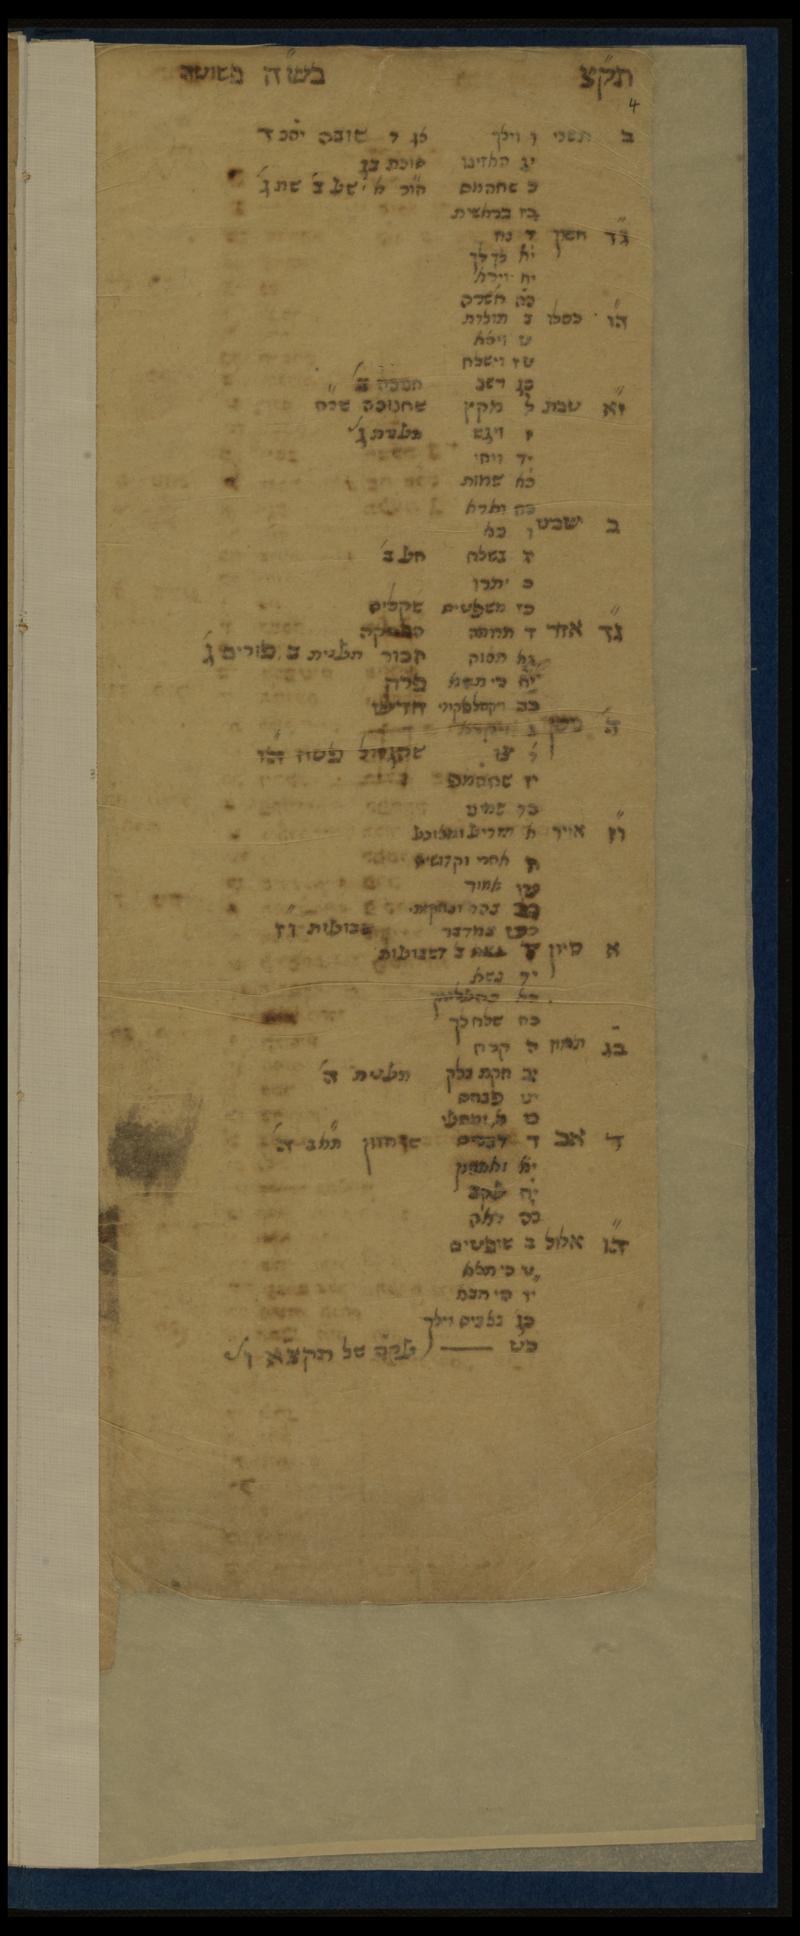 תק״צ בש״ה פשוטה
4
ב תשרי ו וילך גג ד שובה יהכ ד
יג האזינו סוכת בג
כ שחהמס הור א שע ב שת ג
כז בראשית
ג״ד חשון ד נח
יא לך לך
יח וירא
כה חשרה
ה״ו כסלו ב תולדות
ט ויצא
טז וישלח
כג וישב חנוכה ב
ו״א טבת ל מקץ שחנוכה שכח
ז ויגש תענית ג
יד ויחי
כא שמות
כח וארא
ב שבט ו בא
יג בשלח חע ב
כ יתרו
כז משפטים שקלים
ג״ד אדר ד תרומה הפסקה
יא תצוה זכור תענית ב פורים ג
יח כי תשא פרה
כה ויקהל פקודי חדש
ה ניסן ב ויקרא
ט צו שהגדול פסח ה״ו
יז שחהמפ
כד שמיני
ו״ז אייר א תזריע ומצורע
ח אחרי וקדושים
טו אמור
כב בהר ובחקותי
כט במדבר שבועות ו״ז
א סיון ז ב דשבועות
יד נשא
כא בהעלותך
כח שלח לך
ב״ג תמוז ה קרח
יב חקת בלק תענית ה
יט פנחס
כו מ ומסעי
ד אב ד דברים ש חזון ת״אב ה
יא ואתחנן
יח עקב
כה ראה
ה״ו אלול ב שופטים
ט כי תצא
יו כי תבא
כג נצבים וילך
כט —— של תקצ״א